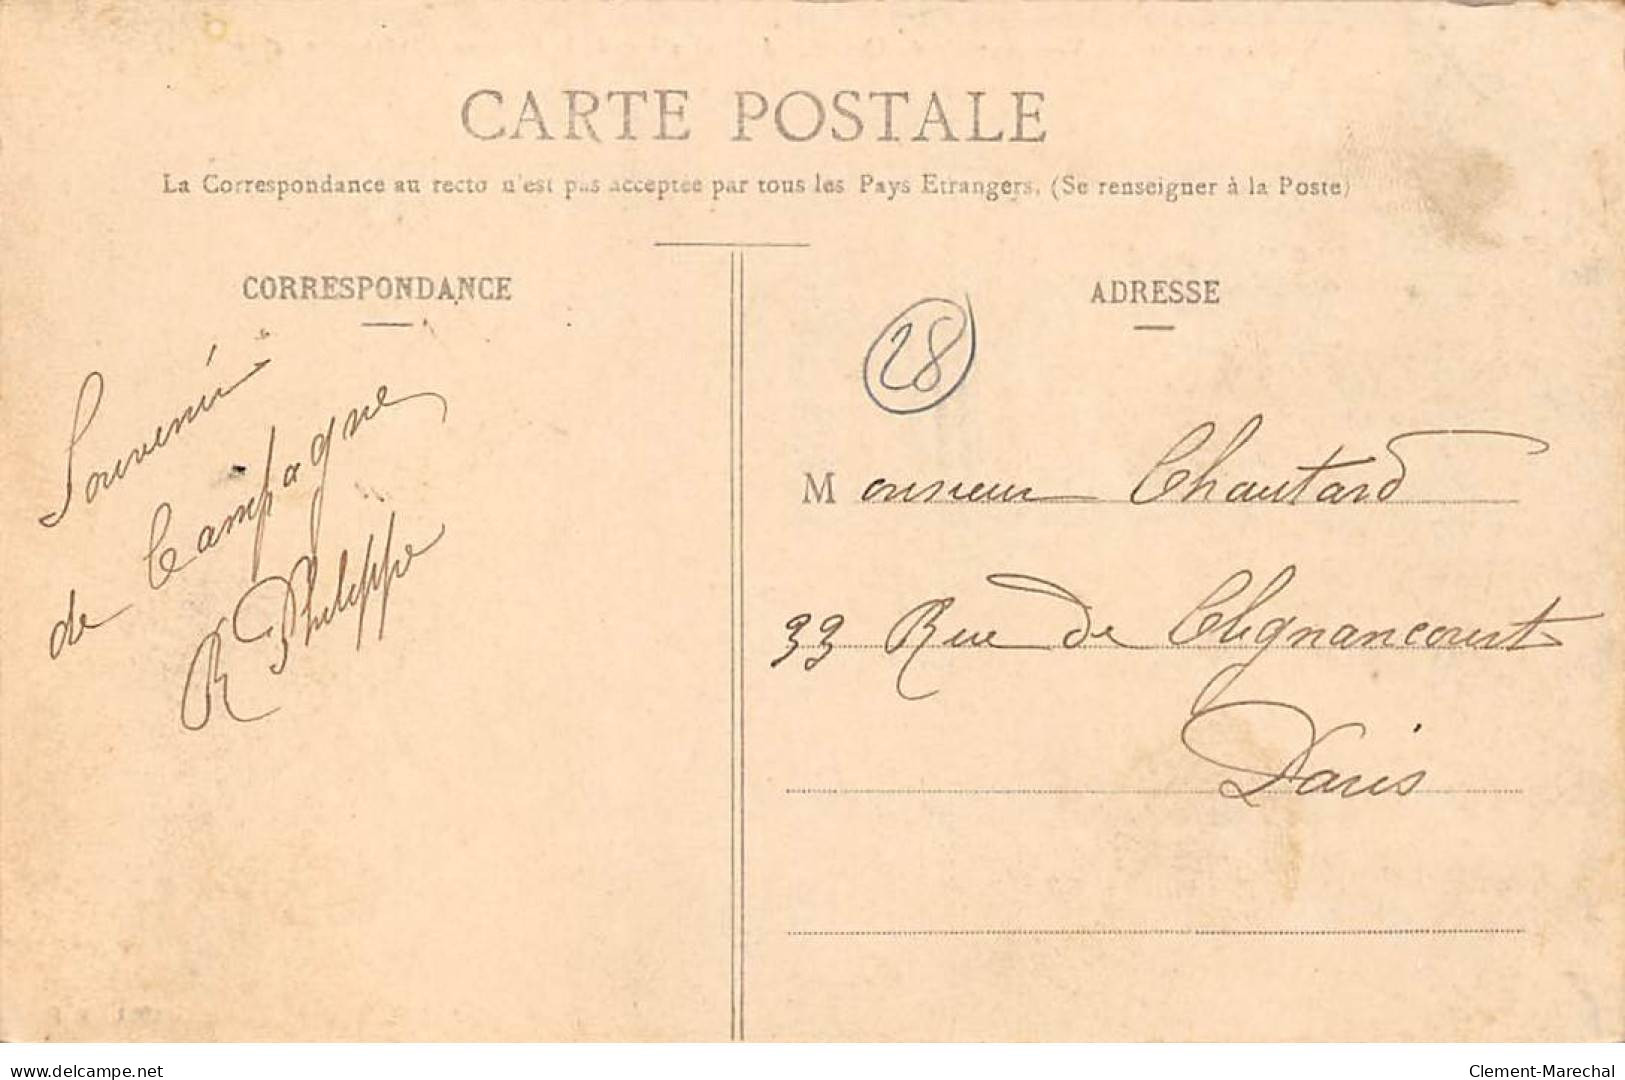 CARTE POSTALE
La Correspondance au recto n'est pas acceptée par tous les Pays Etrangers. (Se renseigner à la Poste)
CORRESPONDANCE
Souvenir
de Campagne
R Philippe
ADRESSE
28
Monsieur Chautard
33 Rue de Clignancourt
Paris
www.delcampe.net
Clement-Marechal